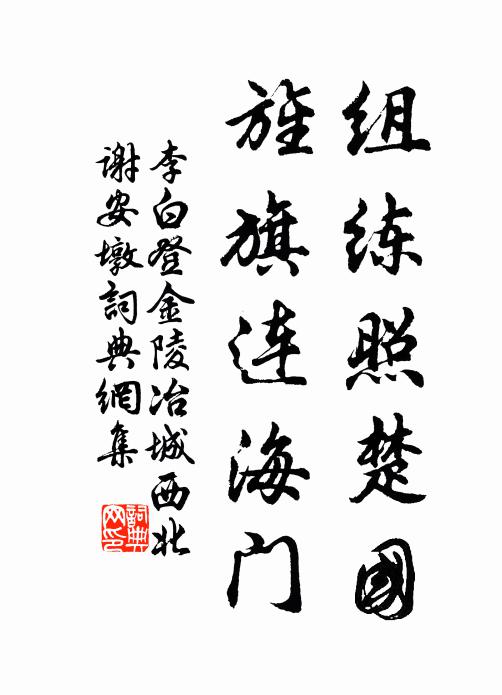 组练照楚國
旌旗连海门
李白登金陵冶城西北
谢安墩詞典網集
詞典
网印